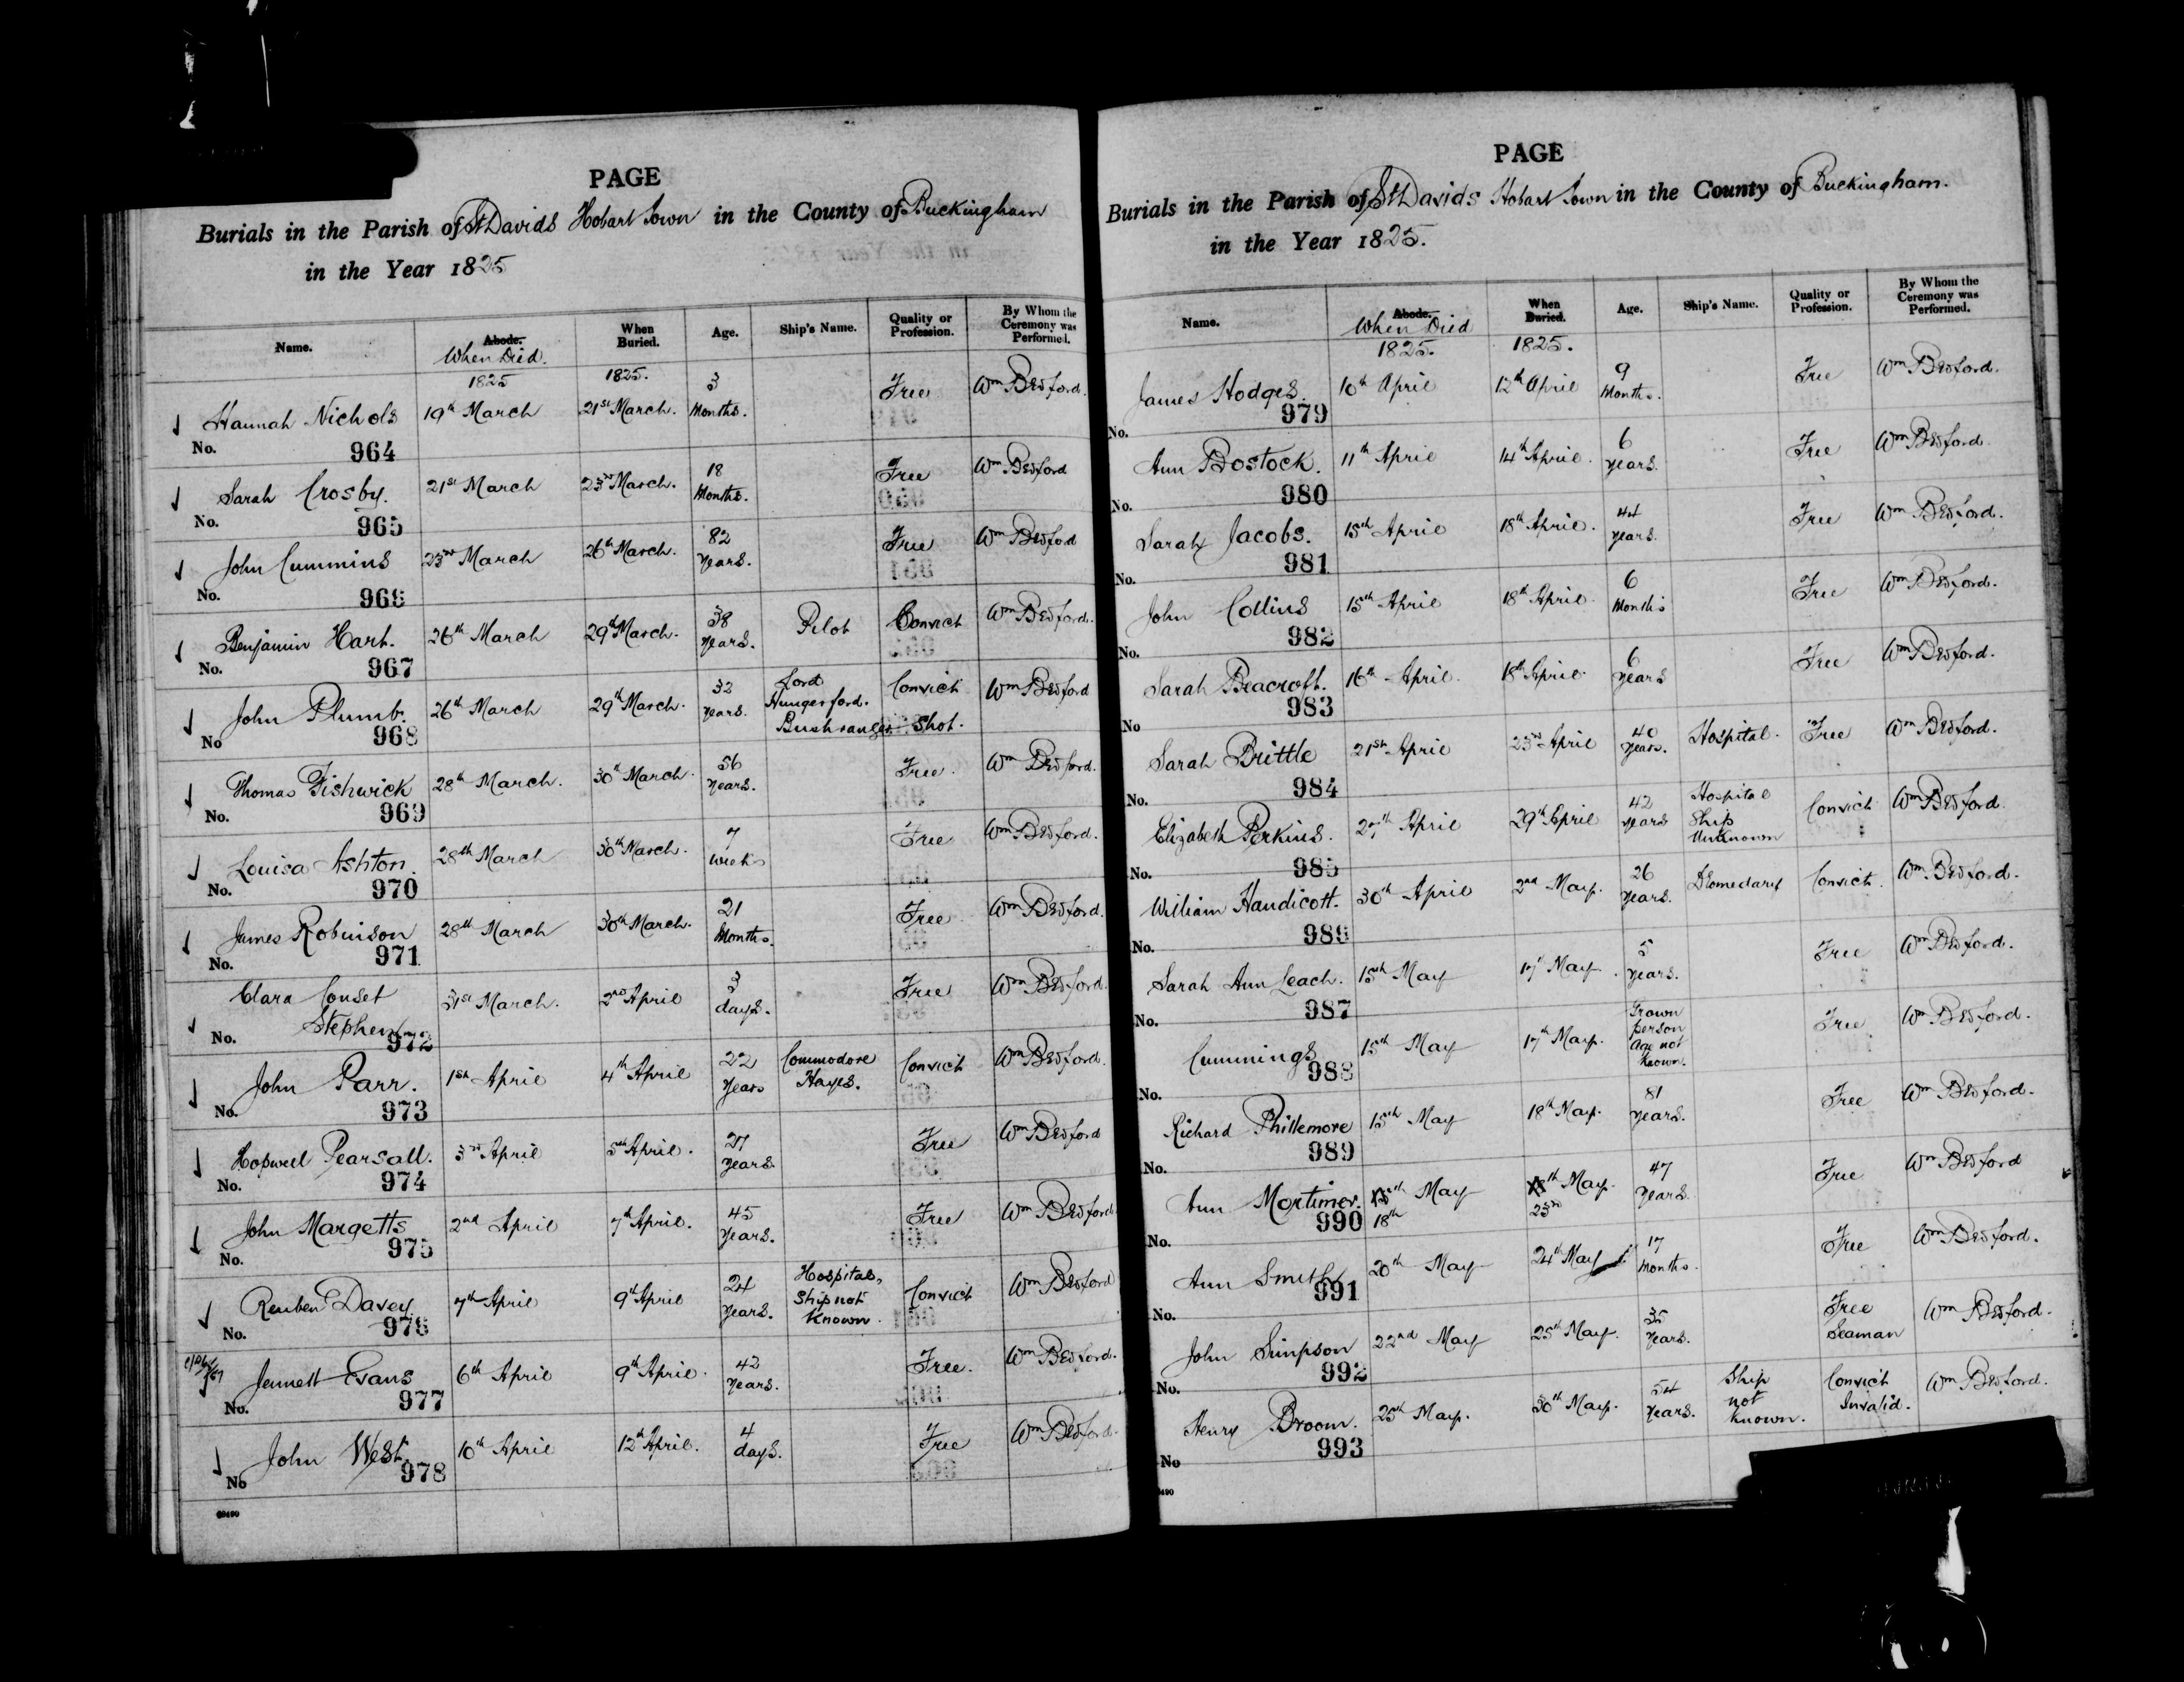 PAGE
Burials in the Parish of St Davids Hobart Town in the County of Buckingham
in the Year 1825
Name. Abode. When Died. When Buried. Age. Ship's Name. Quality or Profession. By Whom the Ceremony was Performed.
1825 1825.
Hannah Nichols 19th March 21st March. 3 Months. Free Wm Bedford.
No. 964
Sarah Crosby. 21st March 23rd March. 18 Months. Free Wm Bedford
No. 965
John Cummins 23rd March 26th March. 82 Years. Free Wm Bedford
No. 966
Benjamin Hart. 26th March 29th March. 38 Years. Pilot Convict Wm Bedford.
No. 967
John Plumb. 26th March 29th March. 32 Years. Lord Hungerford. Bushranger Convict Shot. Wm Bedford
No 968
Thomas Fishwick 28th March. 30th March. 56 Years. Free. Wm Bedford.
No. 969
Louisa Ashton. 28th March 30th March. 7 weeks Free Wm Bedford.
No. 970
James Robinson 28th March 30th March. 21 Months. Free Wm Bedford.
No. 971
Clara Conset Stephen 31st March. 2nd April 3 days. Free Wm Bedford.
No. 972
John Parr. 1st April 4th April 22 Years Commodore Hayes. Convict Wm Bedford.
No. 973
Hopwell Pearsall. 3rd April 5th April. 27 Years. Free Wm Bedford
No. 974
John Margetts 2nd April 7th April. 45 Years. Free Wm Bedford.
No. 975
Reuben Davey. 7th April 9th April 24 Years. Hospital, Ship not Known. Convict Wm Bedford
No. 976
Jennett Evans 6th April 9th April. 42 Years. Free. Wm Bedford.
No. 977
John West. 10th April 12th April. 4 days. Free Wm Bedford.
No 978
PAGE
Burials in the Parish of St Davids Hobart Town in the County of Buckingham.
in the Year 1825.
Name. Abode. When Died When Buried. Age. Ship's Name. Quality or Profession. By Whom the Ceremony was Performed.
1825. 1825.
James Hodges. 10th April 12th April 9 Months. Free Wm Bedford.
No. 979
Ann Bostock. 11th April 14th April. 6 Years. Free Wm Bedford.
No. 980
Sarah Jacobs. 15th April 18th April. 44 Years. Free Wm Bedford.
No. 981
John Collins 15th April 18th April. 6 Months Free Wm Bedford.
No. 982
Sarah Beacroft. 16th April. 18th April. 6 Years Free Wm Bedford.
No 983
Sarah Brittle 21st April 23rd April 40 Years. Hospital. Free Wm Bedford.
No. 984
Elizabeth Perkins. 27th April 29th April 42 Years Hospital Ship Unknown Convict Wm Bedford.
No. 985
William Handicott. 30th April 2nd May. 26 Years. Dromedary Convict. Wm Bedford.
No. 986
Sarah Ann Leach. 15th May 17th May. 5 Years. Free Wm Bedford.
No. 987
Cummings 15th May 17th May. Grown person age not known. Free Wm Bedford.
No. 988
Richard Phillemore 15th May 18th May. 81 Years. Free Wm Bedford.
No. 989
Ann Mortimer. 15th May 18th 18th May. 23rd 47 Years. Free Wm Bedford
No. 990
Ann Smith 20th May 24th May. 17 Months. Free Wm Bedford.
No. 991
John Simpson 22nd May 25th May. 35 Years. Free Seaman Wm Bedford.
No. 992
Henry Broom. 25th May. 30th May. 54 Years. Ship not known. Convict Invalid. Wm Bedford.
No 993